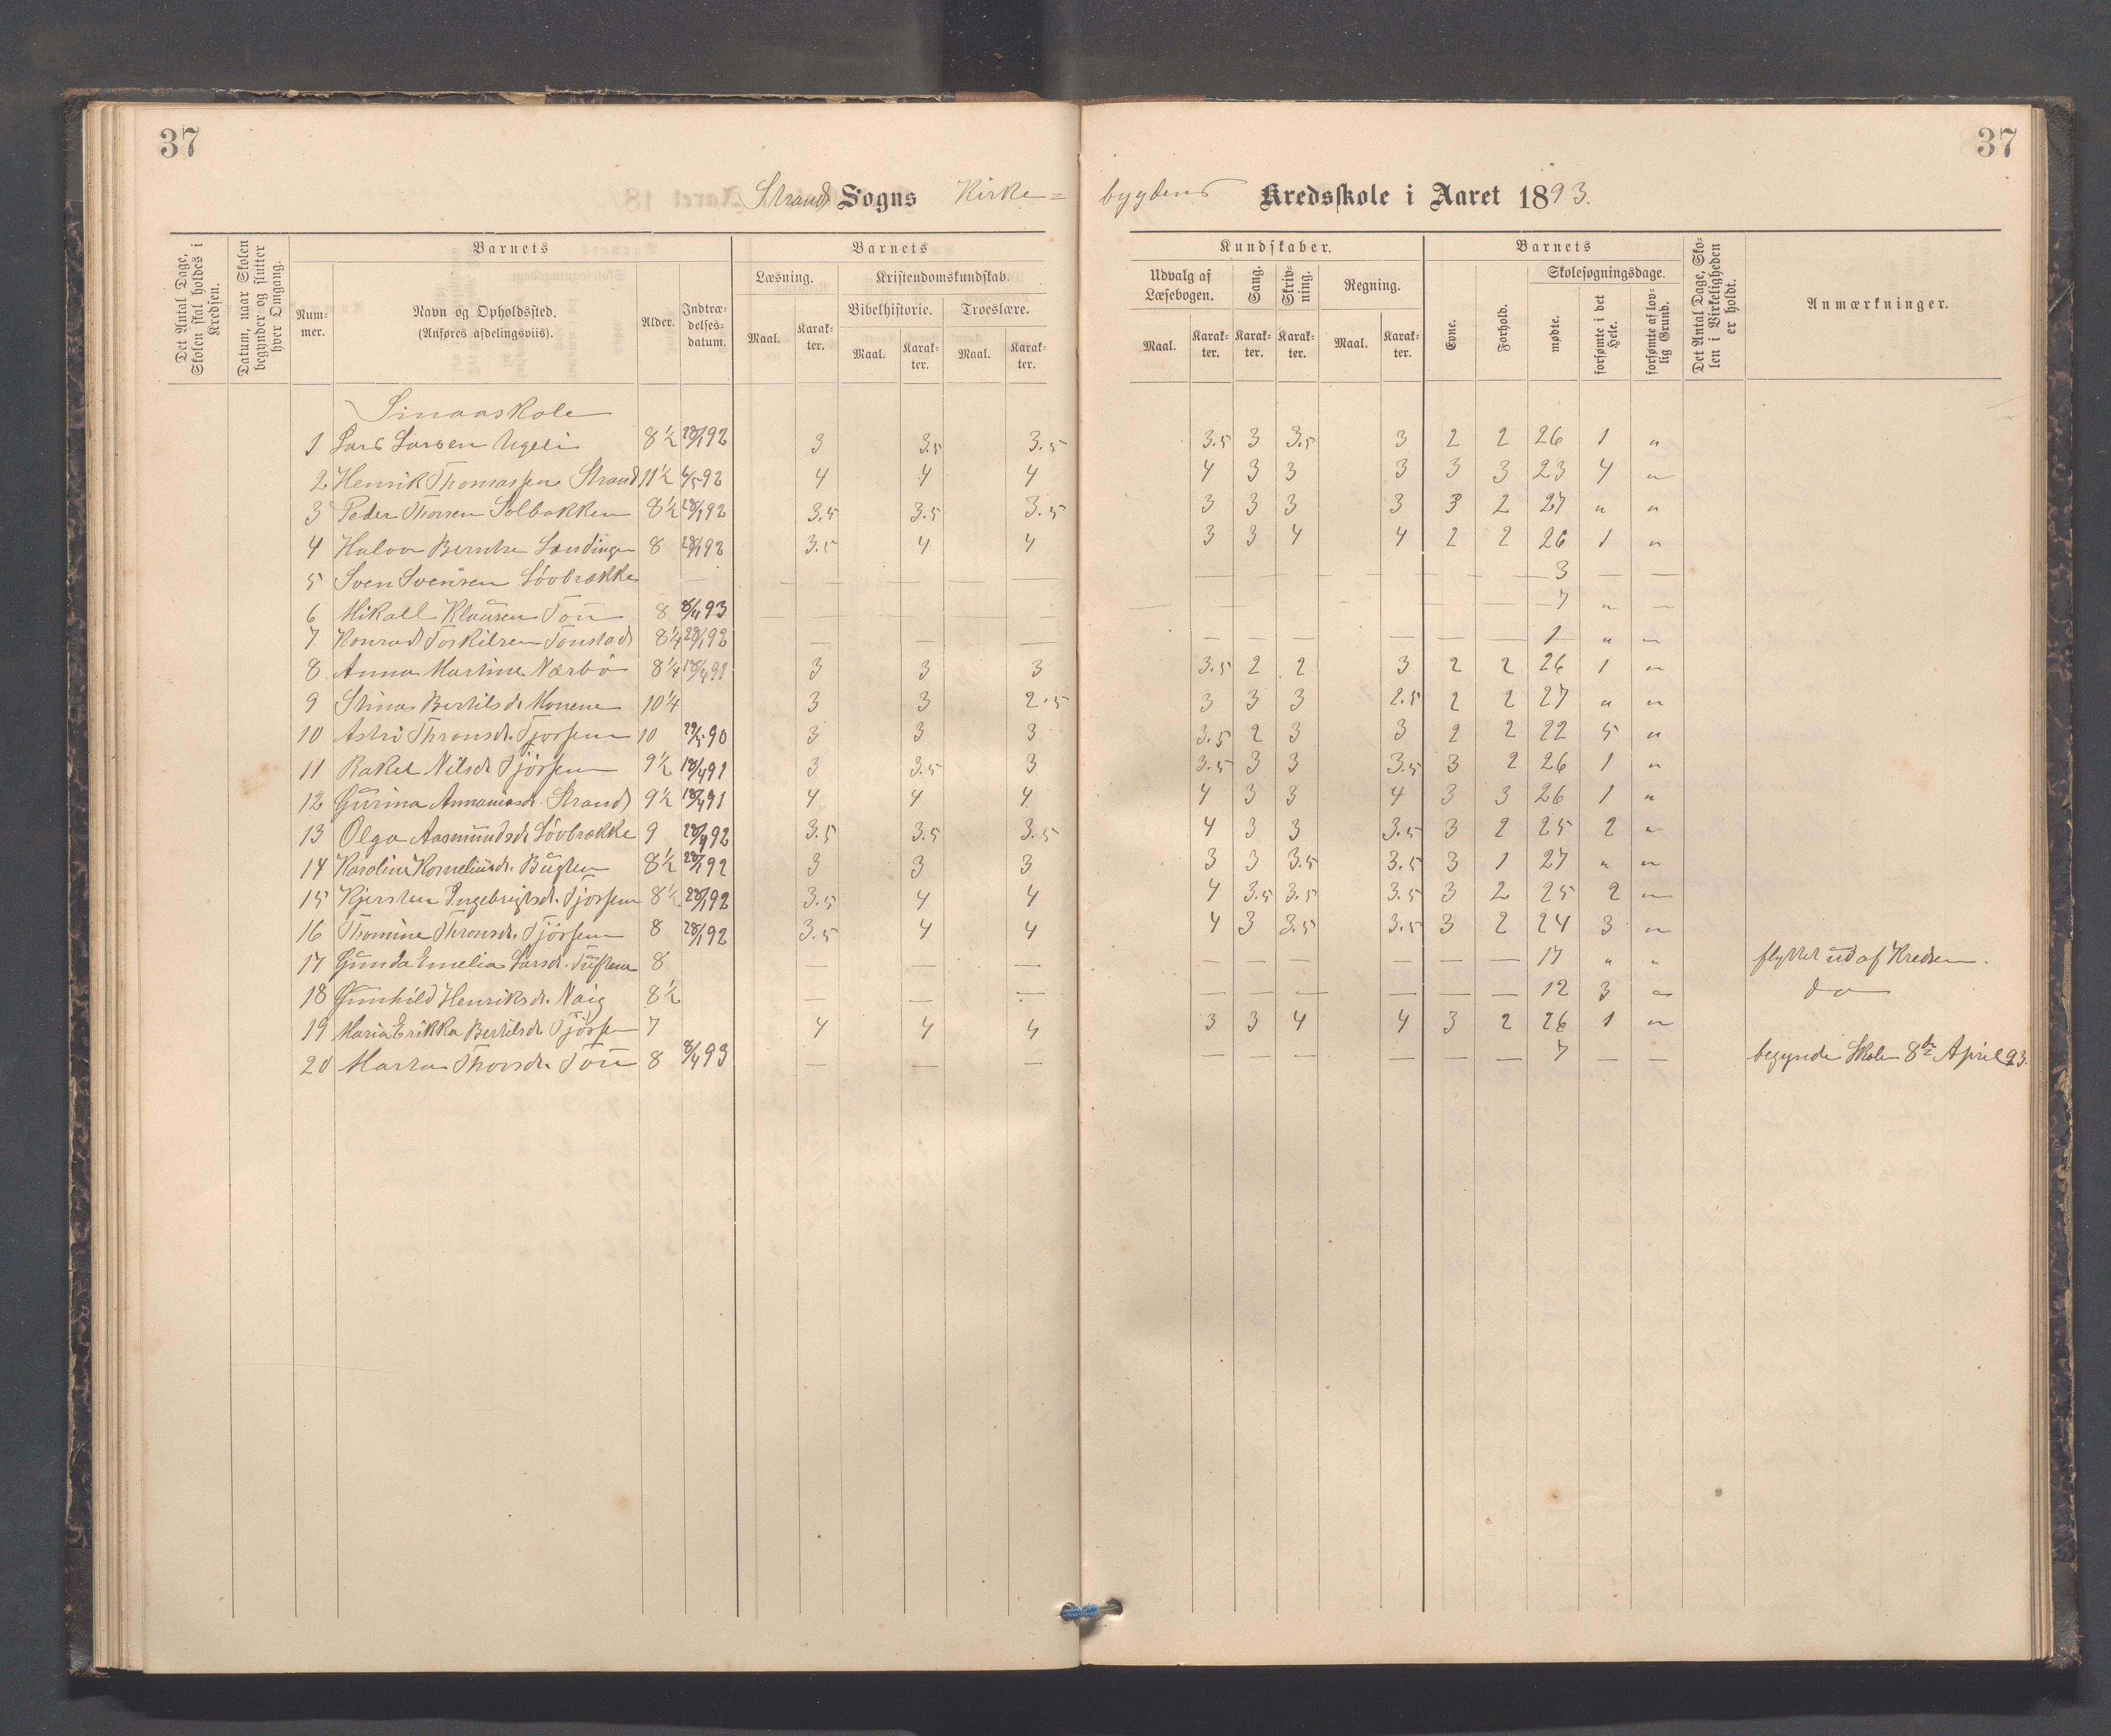 37
37
Strand Sogns Kirke=
bygdens Kredsskole i Aaret 1893.
Det Antal Dage, Skolen skal holdes i Kredsen.
Datum, naar Skolen begynder og slutter hver Omgang.
Barnets
Num-
mer.
Navn og Opholdssted.
(Anføres afdelingsviis).
Alder.
Indtræ-
delses-
datum.
Barnets
Læsning.
Maal.
Karak-
ter.
Kristendomskundskab.
Bibelhistorie.
Maal.
Karak-
ter.
Troeslære.
Maal.
Karak-
ter.
Kundskaber.
Udvalg af
Læsebogen.
Maal.
Karak-
ter.
Sang.
Karak-
ter.
Skriv-
ning.
Karak-
ter.
Regning.
Maal.
Karak-
ter.
Barnets
Evne.
Forhold.
Skolesøgningsdage.
mødte.
forsømte i det Hele.
forsømte af lov-
lig Grund.
Det Antal Dage, Sko-
len i Virkeligheden
er holdt.
Anmærkninger.
Smaaskole
1 Lars Larsen 8½ 28/1 92 3 3.5 3.5 3.5 3 3.5 3 2 2 26 1 "
2 Henrik Thomassen Strand 11½ 6/5 92 4 4 4 4 3 3 3 3 3 23 4 "
3 Peder Thorsen Solbakken 8½ 28/1 92 3.5 3.5 3.5 3 3 3 3 3 2 27 " "
4 Halvor Berntsen 8 28/1 92 3.5 4 4 3 3 4 4 2 2 26 1 "
5 Sven Svensen Lövbrække — — — — — — — — — — 3 — —
6 Mikall Klausen Tou 8 8/4 93 — — — — — — — — — 7 " —
7 Konrad Torkilsen Tonstad 8¼ 28/1 92 — — — — — — — — — 1 " "
8 Anna Martine Nærbö 8¼ 18/4 91 3 3 3 3.5 2 2 3 2 2 26 1 "
9 Stina Bertilsdr Monene 10¼ 3 3 2.5 3 3 3 2.5 2 2 27 " "
10 Astri Thronsdr. Tjössem 10 29/5 90 3 3 3 3.5 2 3 3 2 2 22 5 "
11 Rakel Nilsdr Tjössem 9½ 18/4 91 3 3.5 3 3.5 3 3 3.5 3 2 26 1 "
12 Gurina Strand 9½ 18/4 91 4 4 4 4 3 3 4 3 3 26 1 "
13 Olga Aasmundsdr Lövbrække 9 28/1 92 3.5 3.5 3.5 4 3 3 3.5 3 2 25 2 "
14 Karoline Korneliusdr. 8½ 28/1 92 3 3 3 3 3 3.5 3.5 3 1 27 " "
15 Kjersten Ingebrigtsdr. Tjössem 8½ 28/1 92 3.5 4 4 4 3.5 3.5 3.5 3 2 25 2 "
16 Thomine Thronsdr. Tjössem 8 28/1 92 3.5 4 4 4 3 3.5 3.5 3 2 24 3 "
17 Gunda Emelia Larsdr. 8 — — — — — — — — — 17 " " flyttet ud af Kredsen.
18 Gunhild Henriksdr. Naig 8½ — — — — — — — — — 12 3 " do
19 Maria Erikka Bertilsdr Tjössem 7 4 4 4 3 3 4 4 3 2 26 1 "
20 Marta Thorsdr. Tou 8 8/4 93 — — — — — — — — — 7 — — begyndte Skolen 8de April 93.